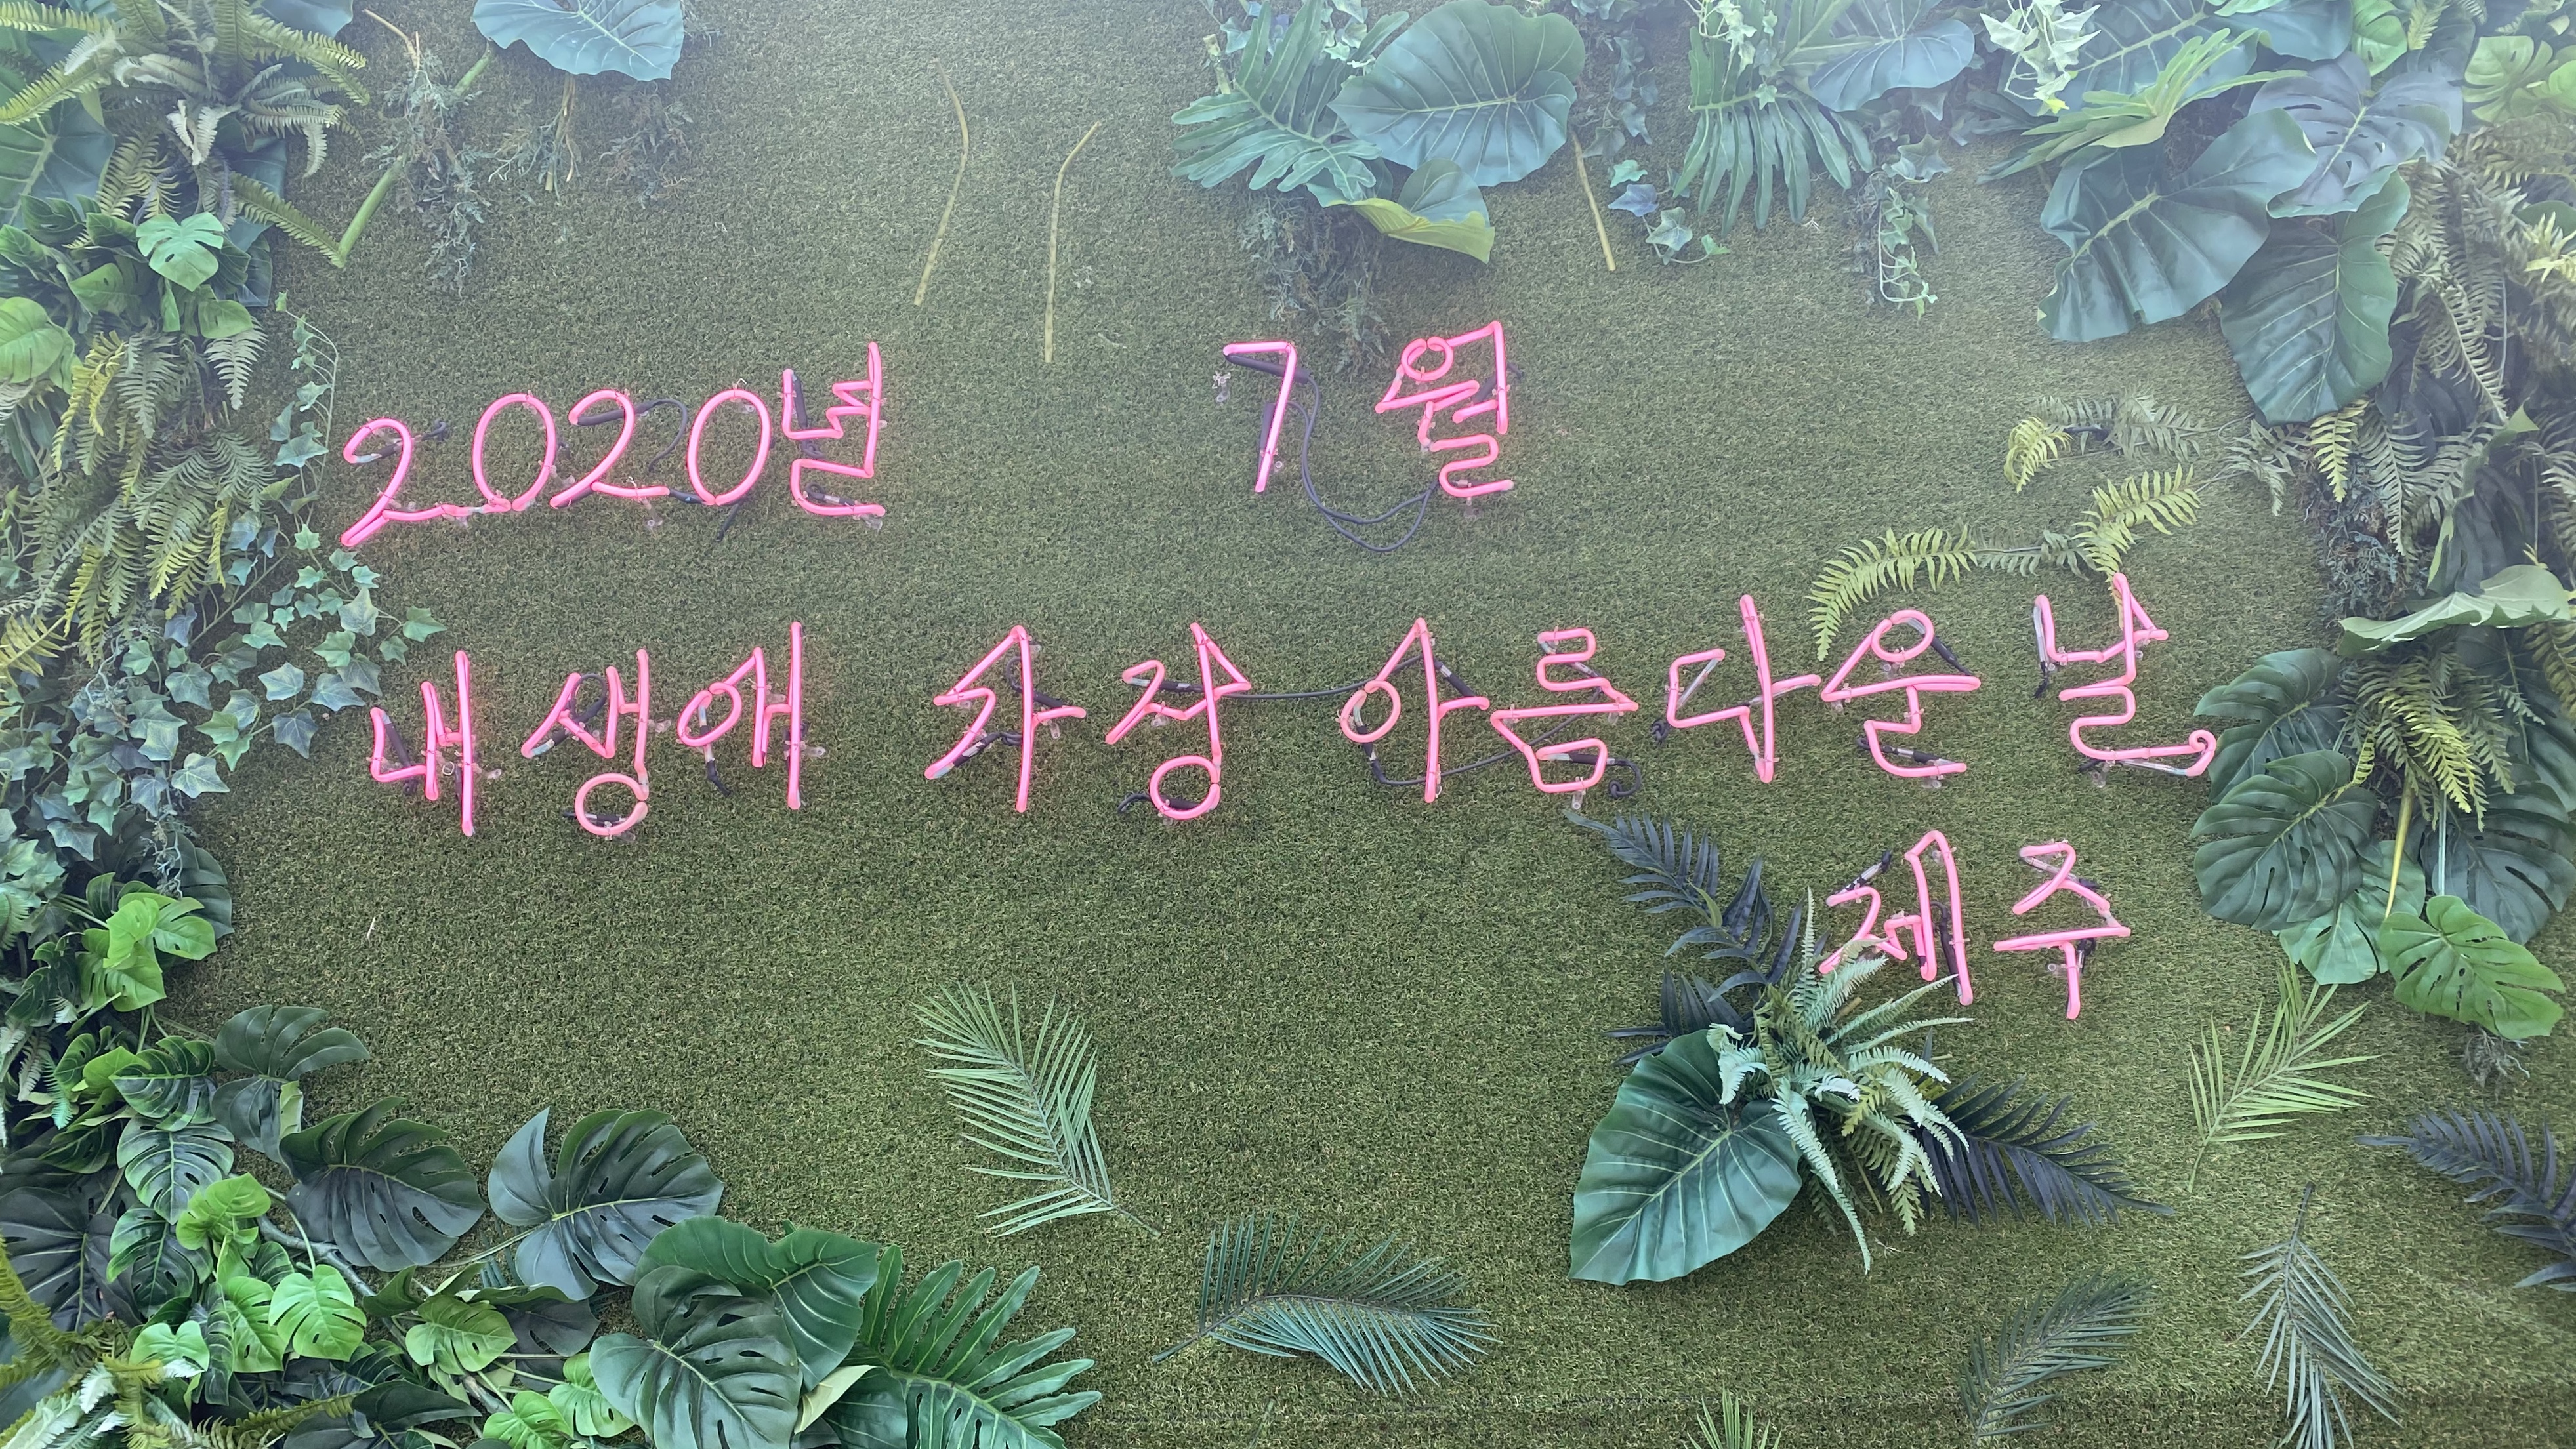 2020년 7월
내 생애 가장 아름다운 날
제주